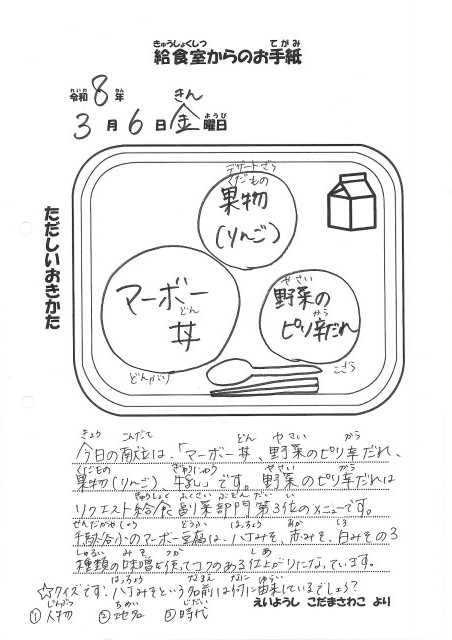 給食室からのお手紙
令和8年
3月6日金曜日
ただしいおきかた
デザートざら
果物
(りんご)
マーボー
丼
どんばち
野菜の
ピリ辛だれ
こざら
今日の献立は、「マーボー丼、野菜のピリ辛だれ、
果物(りんご)、牛乳」です。野菜のピリ辛だれは
リクエスト給食副菜部門第3位のメニューです。
小のマーボー豆腐は、八丁みそ、赤みそ、白みその3
種類の味噌を使ってコクのある仕上がりになっています。
☆クイズです。八丁みそという名前は何に由来しているでしょう?
①人物 ②地名 ③時代
えいようし こだまさわこ より